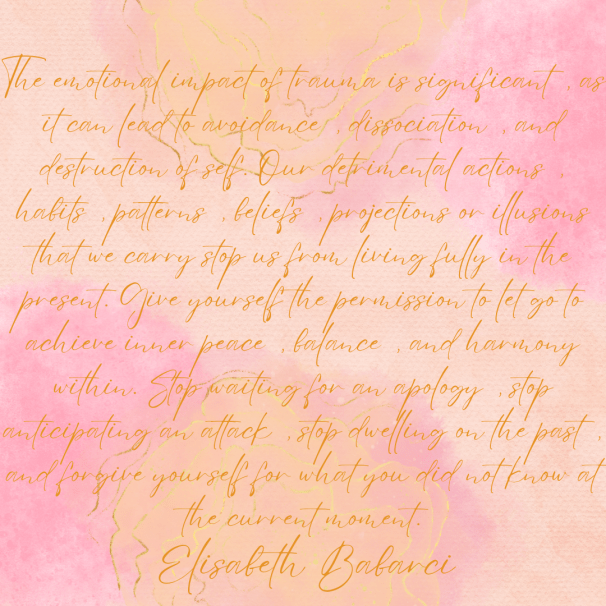 The emotional impact of trauma is significant , as
it can lead to avoidance , dissociation , and
destruction of self. Our detrimental actions ,
habits , patterns , beliefs , projections or illusions
that we carry stop us from living fully in the
present. Give yourself the permission to let go to
achieve inner peace , balance , and harmony
within. Stop waiting for an apology , stop
anticipating an attack , stop dwelling on the past ,
and forgive yourself for what you did not know at
the current moment.
Elisabeth Babarci